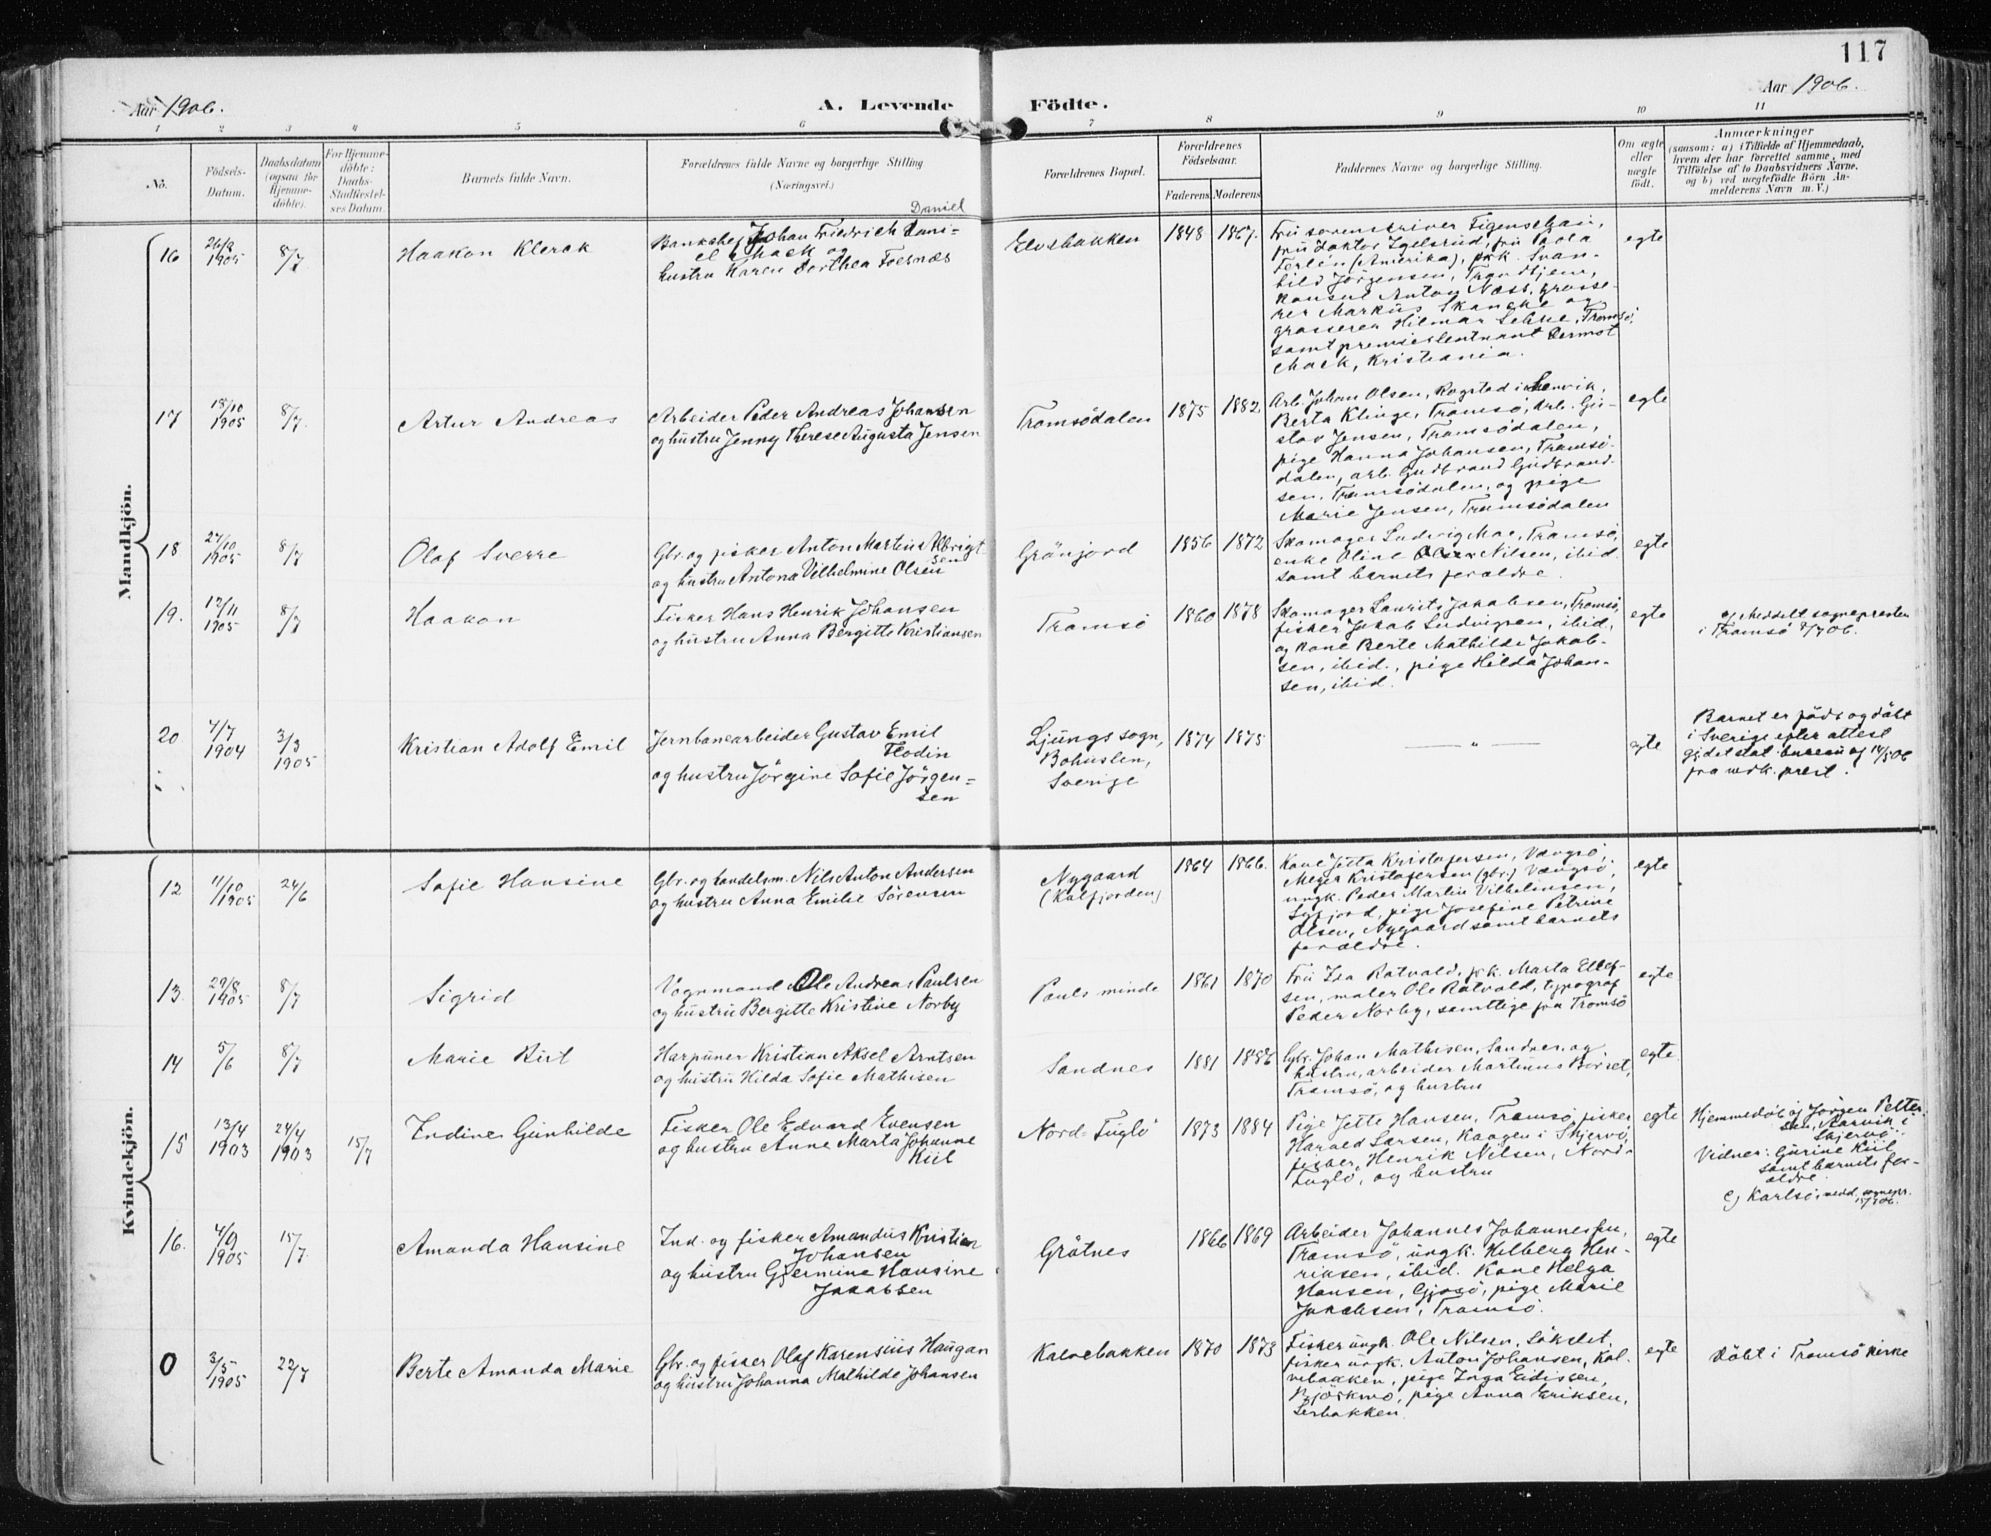 117
Aar 1906.
A. Levende Födte.
Aar 1906.
1 2 3 4 5 6 7 8 9 10 11
No.
Födsels-Datum.
Daabsdatum (ogsaa for Hjemme-döbte).
For Hjemme-döbte: Daabs-Stadfæstel-ses Datum.
Barnets fulde Navn.
Forældrenes fulde Navne og borgerlige Stilling
(Næringsvei.)
Forældrenes Bopæl.
Forældrenes Födselsaar.
Faderens Moderens
Faddernes Navne og borgerlige Stilling.
Om ægte eller uægte födt.
Anmærkninger
(saasom: a) i Tilfælde af Hjemmedaab,
hvem der har forrettet samme, med
Tilföielse af to Daabsvidners Navne,
og b) ved uægtefödte Börn An-
melderens Navn m. V.)
Mandkjön.
16 26/8 1905 8/7 Haakon Klerck
Daniel
Johan Friedrich Dani-
el Mack og
hustru Karen Dorthea Foesnæs
Elvebakken 1848 1867.
fru doktor Igelsrud, fru
(Amerika), frk. Svan-
hild Jörgensen, Trondhjem,
konsul Anton Næss, grosse-
rer Markus Skancke og
grosserer Hilmar Tromsö,
samt premierleutnant Dermot
Mack, Kristiania.
egte
17 18/10 1905 8/7. Artur Andreas
Arbeider Peder Andreas Johansen
og hustru Jenny Therese Augusta Jensen
Tromsödalen 1875 1882
Arb. Johan Olsen, Rogstad i Lenvik,
Berta Klinge, Tromsö, arb. Gu-
stav Jensen, Tromsödalen,
pige Hanna Johansen, Tromsö-
dalen, arb. Gudbrand Gudbrand-
sen, Tromsödalen, og pige
Marie Jensen, Tromsödalen
egte
18 27/10 1905 8/7 Olaf Sverre
Gbr. og fisker Anton Martin Albrigt-
sen
og hustru Antona Vilhelmine Olsen
Grönjord 1856 1872
Skomager Ludvig Moe, Tromsö,
enke Oline Nilsen, ibid.
samt barnets forældre.
egte
19. 12/11 1905 8/7 Haakon
Fisker Hans Henrik Johansen
og hustru Anna Bergitte Kristiansen
Tromsö 1860 1878
Skomager Laurits Jakobsen, Tromsö,
fisker Jakob Ludvigsen, ibid.,
og kone Berte Mathilde Jakob-
sen, ibid., pige Hilda Johan-
sen, ibid.
egte
Meddelt sognepresten
i Tromsö 9/7 06.
20. 4/7 1904 3/3 1905 Kristian Adolf Emil
Jernbanearbeider Gustav Emil
Flodin
og hustru Jörgine Sofie Jörgen-
sen
Ljungs sogn,
Bohuslen,
Sverige
1874 1875
— „ —
egte
Barnet er födt og döbt
i Sverige efter attest
gj. det stat. bureau af 14/5 06
fra vedk. prest.
Kvindekjön.
12 11/10 1905 24/6 Sofie Hansine
Gbr. og handelsm. Nils Anton Andersen
og hustru Anna Emilie Sörensen
Nygaard
(Kalfjorden)
1864 1866.
Kone Jetta Kristofersen, Vængsö,
Meyer Kristofersen (gbr.) Vængsö,
ungk. Peder Martin Vilhelmsen,
pige Josefine Petrine
Olsen, Nygaard samt barnets
forældre.
egte
13. 29/8 1905 8/7 Sigrid
Vognmand Ole Andreas Paulsen
og hustru Bergitte Kristine Norby
Pauls minde 1861 1870
Fru Isa Ratvold, frk. Marta Ellef-
sen, maler Ole Ratvold, typograf
Peder Norby, samtlige fra Tromsö
egte
14 5/6 8/7 Marie Rut
Harpuner Kristian Aksel Arntsen
og hustru Hilda Sofie Mathisen
Sandnes 1881 1886
Gbr. Johan Mathisen, Sandnes, og
hustru, arbeider Martinus Börset,
Tromsö, og hustru
egte
15 13/4 1903 24/4 1903 15/7 Indine Gunhilde
Fisker Ole Edvard Evensen
og hustru Anne Marta Johanne
Kiil
Nord-Fuglö 1873 1884
Pige Jette Hansen, Tromsö, fisker
Harald Larsen, Kaagen i Skjervö,
fisker, Henrik Nilsen, Nord-
Fuglö, og hustru
egte
Hjemmedöb af Jörgen Petter-
sen, i
Skjervö.
Vidner: Gurine Kiil
samt barnets for-
ældre.
Karlsö, medd. sognepr.
15/7 06.
16. 4/9 1905 15/7. Amanda Hansine
Ind. og fisker Amandus Kristian
Johansen
og hustru Gjermine Hansine
Jakobsen
Gråtnes 1866 1869
Arbeider Johannes Johannesen,
Tromsö, ungk. Hilberg Hen-
riksen, ibid. Kone Helga
Hansen, Gjosö, pige Marie
Jakobsen, Tromsö.
egte
0 3/5 1905 22/7 Berte Amanda Marie
Gbr. og fisker Olaf Karensius Haugan
og hustru Johanna Mathilde Johansen
Kalvebakken 1870 1873
Fisker ungk. Ole Nilsen,
fisker ungk. Anton Johansen, Kal-
vebakken, pige Inga Eidissen,
Björkmo, pige Anna Eriksen,
Lerbakken.
egte
Döbt i Tromsö kirke